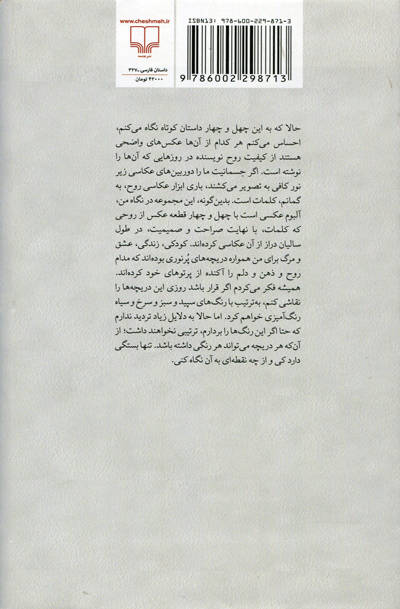 www.cheshmeh.ir
نشرچشمه
داستان فارسی، ۳۳۷
۴۲۰۰۰ تومان
ISBN13: 978-600-229-871-3
9 786002 298713
حالا که به این چهل و چهار داستان کوتاه نگاه می‌کنم،
احساس می‌کنم هر کدام از آن‌ها عکس‌های واضحی
هستند از کیفیت روح نویسنده در روزهایی که آن‌ها را
نوشته است. اگر جسمانیت ما را دوربین‌های عکاسی زیر
نور کافی به تصویر می‌کشند، باری ابزار عکاسی روح، به
گمانم، کلمات است. بدین‌گونه، این مجموعه در نگاه من،
آلبوم عکسی است با چهل و چهار قطعه عکس از روحی
که کلمات، با نهایت صراحت و صمیمیت، در طول
سالیان دراز از آن عکاسی کرده‌اند. کودکی، زندگی، عشق
و مرگ برای من همواره دریچه‌های پُرنوری بوده‌اند که مدام
روح و ذهن و دلم را آکنده از پرتوهای خود کرده‌اند.
همیشه فکر می‌کردم اگر قرار باشد روزی این دریچه‌ها را
نقاشی کنم، به‌ترتیب با رنگ‌های سپید و سبز و سرخ و سیاه
رنگ‌آمیزی خواهم کرد. اما حالا به دلایل زیاد تردید ندارم
که حتا اگر این رنگ‌ها را بردارم، ترتیبی نخواهند داشت؛ از
آن‌که هر دریچه می‌تواند هر رنگی داشته باشد. تنها بستگی
دارد کی و از چه نقطه‌ای به آن نگاه کنی.